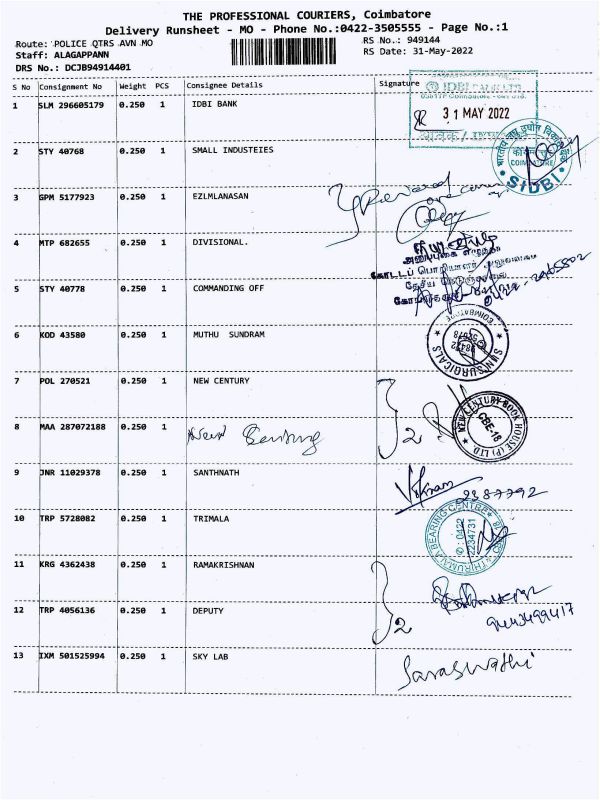 THE PROFESSIONAL COURIERS, Coimbatore
Delivery Runsheet - MO - Phone No.:0422-3505555 - Page No.:1
Route: POLICE QTRS AVN MO RS No.: 949144
Staff: ALAGAPPANN RS Date: 31-May-2022
DRS No.: DCJB94914401
S No Consignment No Weight PCS Consignee Details Signature
1 SLM 296605179 0.250 1 IDBI BANK
31 MAY 2022
2 STY 40768 0.250 1 SMALL INDUSTEIES
COIMBATORE
SIDBI
3 GPM 5177923 0.250 1 EZLMLANASAN
4 MTP 682655 0.250 1 DIVISIONAL.
5 STY 40778 0.250 1 COMMANDING OFF
6 KOD 43580 0.250 1 MUTHU SUNDRAM
COIMBATORE
SUN SURGICALS
7 POL 270521 0.250 1 NEW CENTURY
NEW CENTURY BOOK HOUSE (P) LTD.
CBE-18
2
8 MAA 287072188 0.250 1
9 JNR 11029378 0.250 1 SANTHNATH
Vikram 2387792
10 TRP 5728082 0.250 1 TRIMALA
THIRUMALA BEARING CENTRE
0422
2234731
11 KRG 4362438 0.250 1 RAMAKRISHNAN
12 TRP 4056136 0.250 1 DEPUTY
2
13 IXM 501525994 0.250 1 SKY LAB
Saraswathi